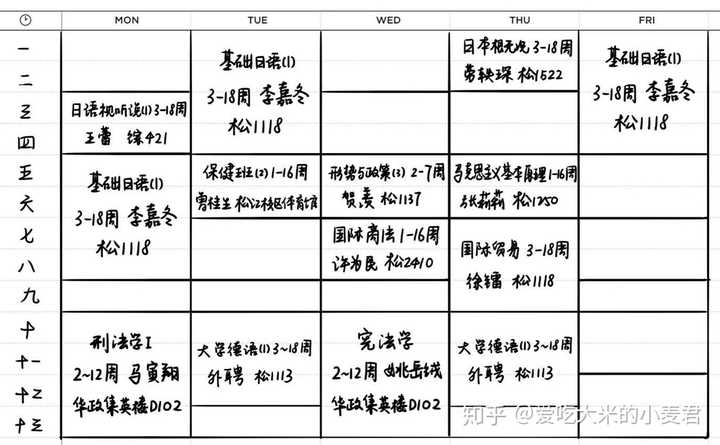 MON TUE WED THU FRI
一
二
三
四
五
六
七
八
九
十
十一
十二
十三
日语视听说(1) 3-18周
王蕾 综421
基础日语(1)
3-18周 李嘉冬
松1118
刑法学I
2~12周 马寅翔
华政集英楼D102
基础日语(1)
3-18周 李嘉冬
松1118
保健班(2) 1-16周
曾佳 松江校区体育馆
大学德语(1) 3~18周
外聘 松1113
形势与政策(3) 2-7周
贺 松1137
国际商法 1-16周
许为民 松2410
宪法学
2~12周 姚岳绒
华政集英楼D102
日本概况 3-18周
劳轶琛 松1522
马克思主义基本原理 1-16周
张莉莉 松1250
国际贸易 3-18周
徐镭 松1118
大学德语(1) 3~18周
外聘 松1113
基础日语(1)
3-18周 李嘉冬
松1118
知乎 @爱吃大米的小麦君